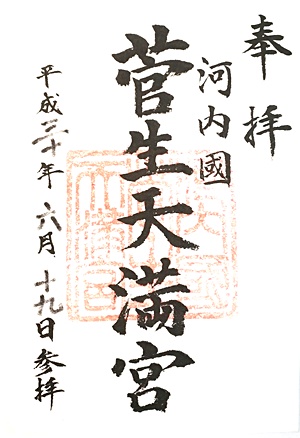 奉拝
河内國
菅生天満宮
平成三十年六月十九日参拝